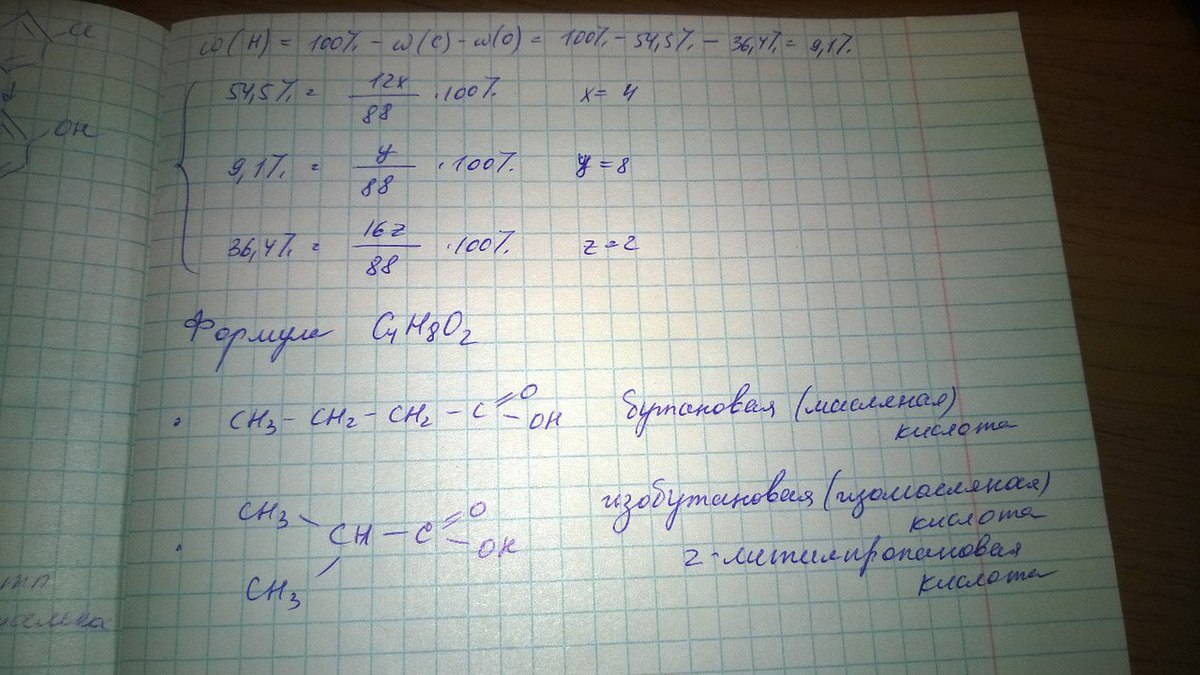 ω(H) = 100% - ω(C) - ω(O) = 100% - 54,5% - 36,4% = 9,1%
54,5% = 12x/88 · 100% x = 4
9,1% = y/88 · 100% y = 8
36,4% = 16z/88 · 100% z = 2
Формула C4H8O2
CH3 - CH2 - CH2 - C =O -OH бутановая (масляная)
кислота
CH3 CH3 CH - C =O -OH изобутановая (изомасляная)
кислота
2-метилпропановая
кислота
Cl
OH